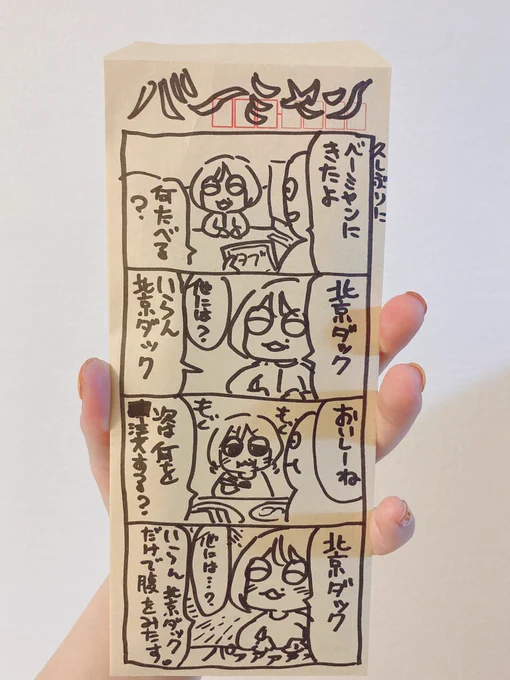 バーミヤン
久しぶりに
バーミヤンに
きたよ
何たべる
?
タブ
北京ダック
他には?
いらん
北京ダック
おいしーね
もぐ
もぐ
次は何を
注文する?
北京ダック
他には…?
いらん 北京ダック
だけで腹をみたす。
パァァァァ